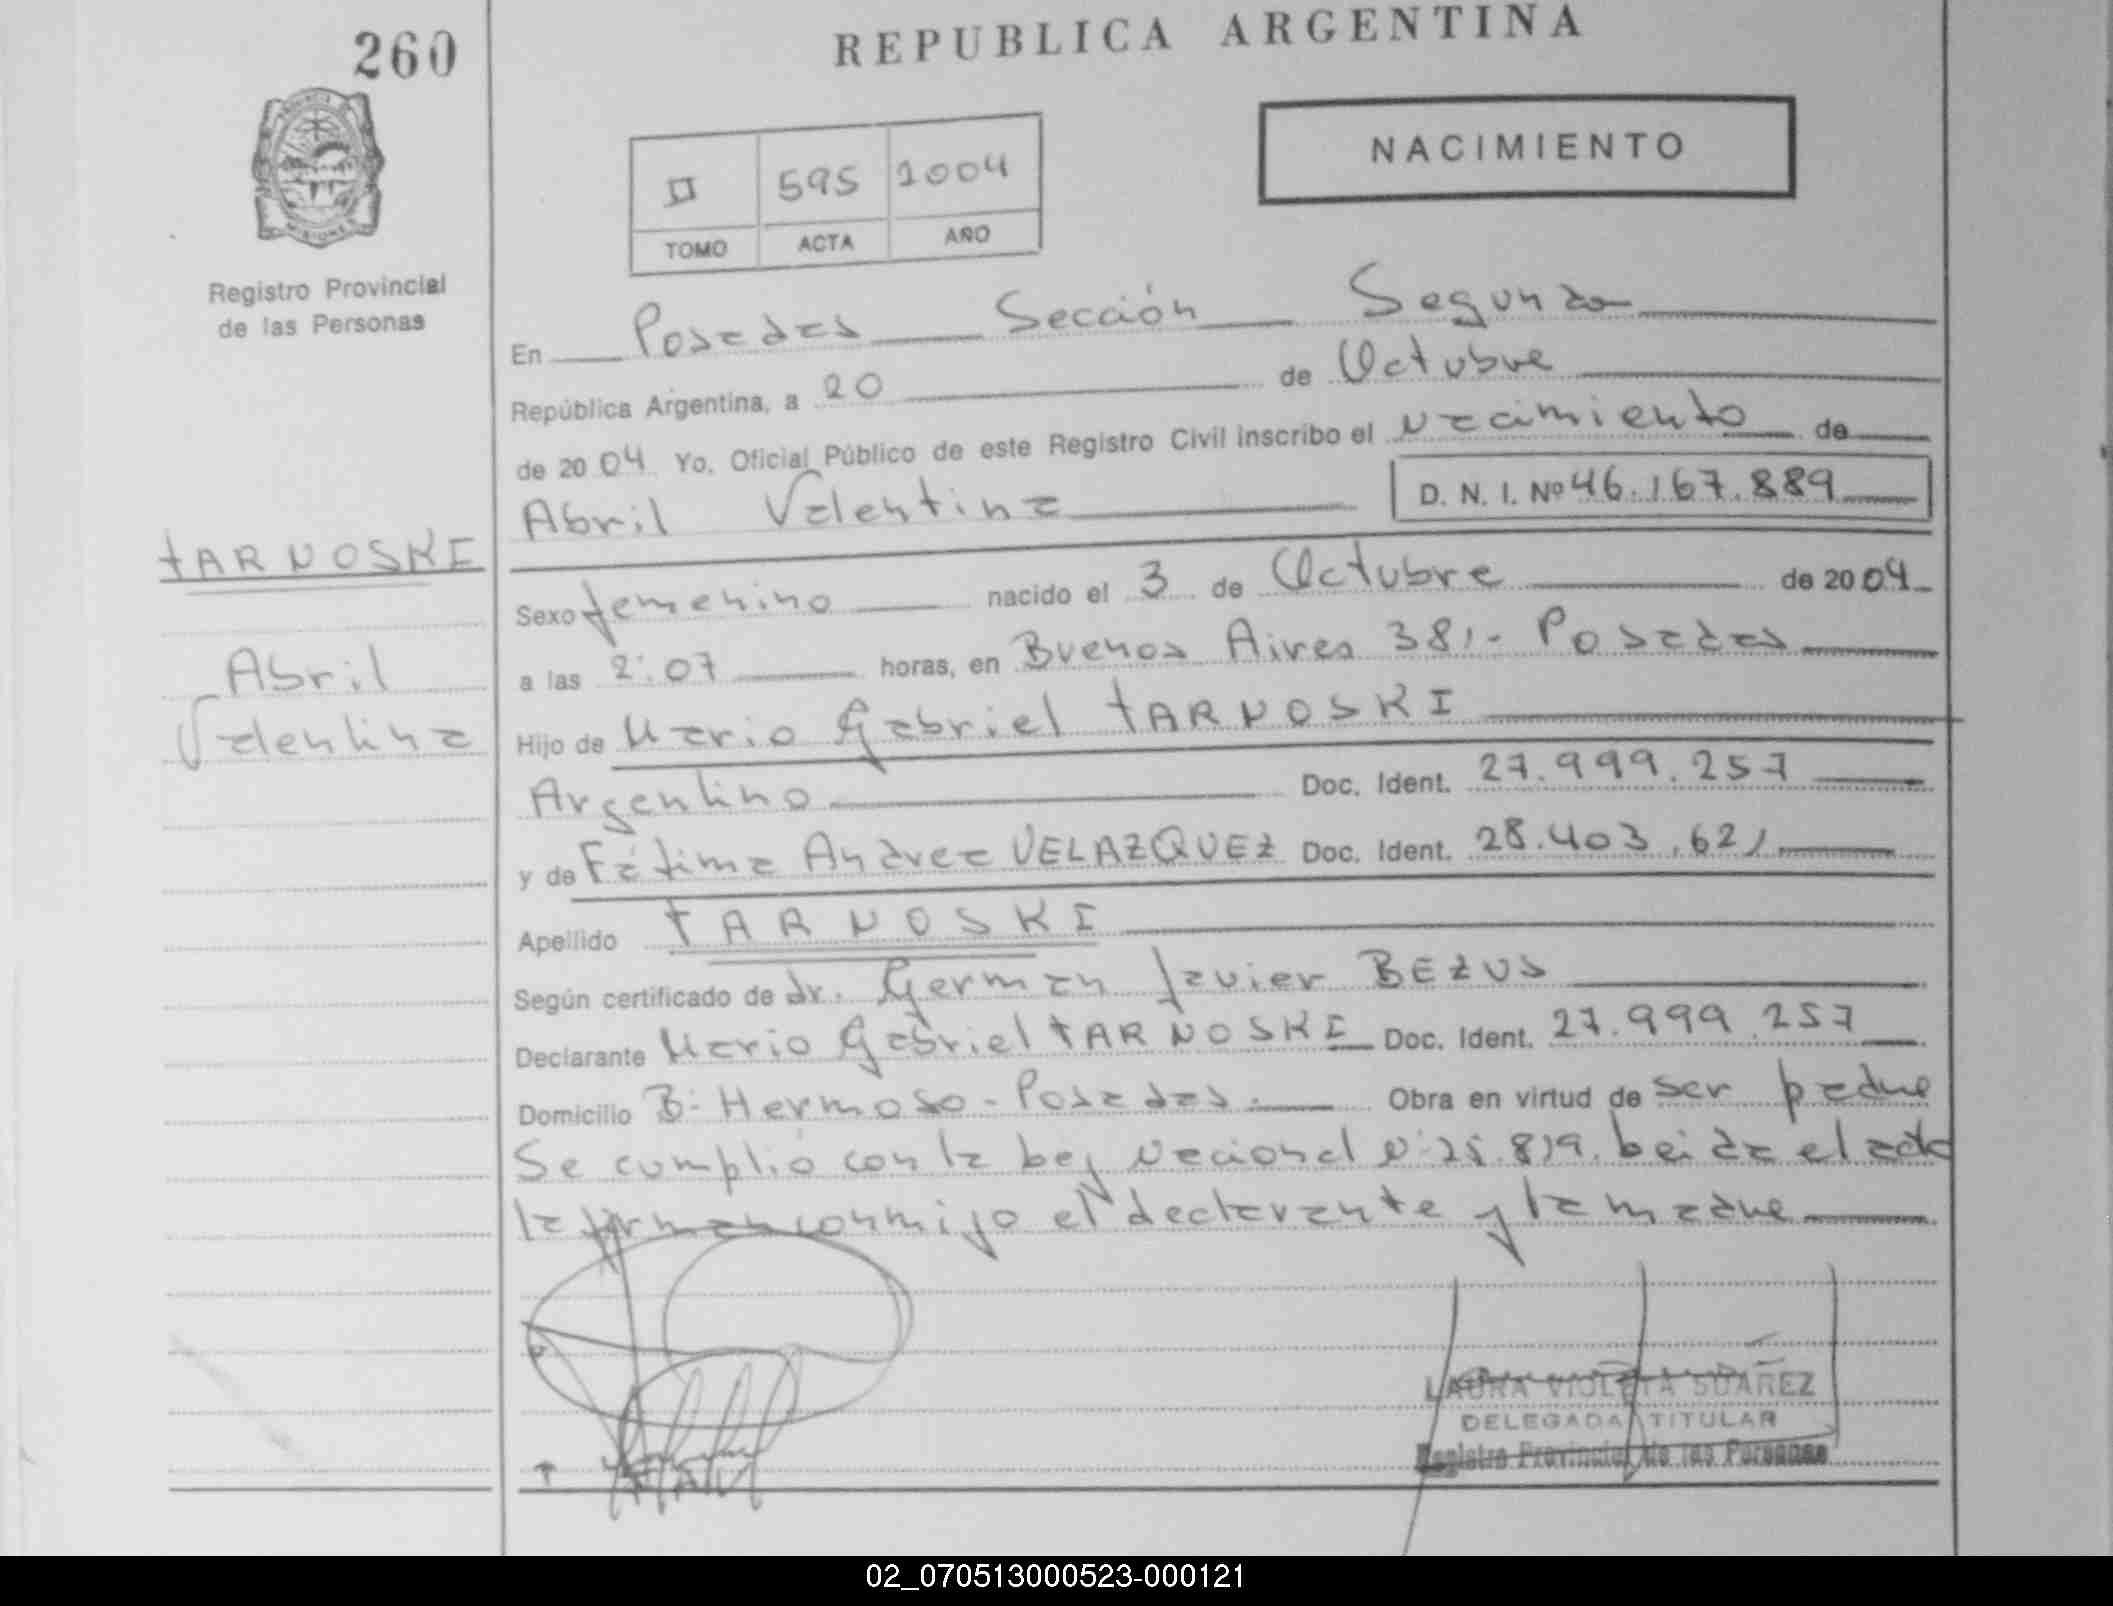 260
REPUBLICA ARGENTINA
NACIMIENTO
II 595 2004
TOMO ACTA AÑO
Registro Provincial
de las Personas
En Posadas Sección Segunda
República Argentina, a 20 de Octubre
de 2004 Yo, Oficial Público de este Registro Civil inscribo el nacimiento de
Abril Valentina D. N. I. Nº 46.167.889
TARNOSKI
Abril
Valentina
Sexo femenino nacido el 3 de Octubre de 2004
a las 2:07 horas, en Buenos Aires 381- Posadas
Hijo de Mario Gabriel TARNOSKI
Argentino Doc. Ident. 27.999.257
y de Fátima Andrea VELAZQUEZ Doc. Ident. 28.403.621
Apellido TARNOSKI
Según certificado de dr. German Javier BEZUS
Declarante Mario Gabriel TARNOSKI Doc. Ident. 27.999.257
Domicilio B: Hermoso - Posadas. Obra en virtud de ser padre
Se cumplió con la Ley Nacional Nº 25.819. Leida el acta
la firman conmigo el declarante y la madre
LAURA VIOLETA SUAREZ
DELEGADA TITULAR
Registro Provincial de las Personas
02_070513000523-000121